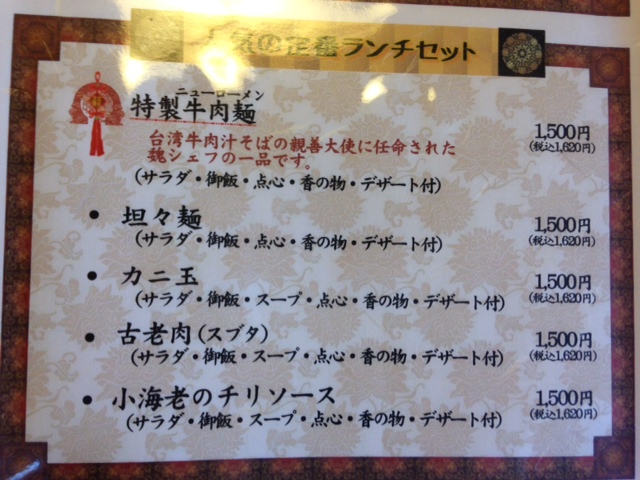 人気の定番ランチセット
ニューローメン
特製牛肉麺
1,500円
(税込1,620円)
台湾牛肉汁そばの親善大使に任命された
魏シェフの一品です。
(サラダ・御飯・点心・香の物・デザート付)
• 坦々麺
1,500円
(税込1,620円)
(サラダ・御飯・点心・香の物・デザート付)
• カニ玉
1,500円
(税込1,620円)
(サラダ・御飯・スープ・点心・香の物・デザート付)
• 古老肉(スブタ)
1,500円
(税込1,620円)
(サラダ・御飯・スープ・点心・香の物・デザート付)
• 小海老のチリソース
1,500円
(税込1,620円)
(サラダ・御飯・スープ・点心・香の物・デザート付)